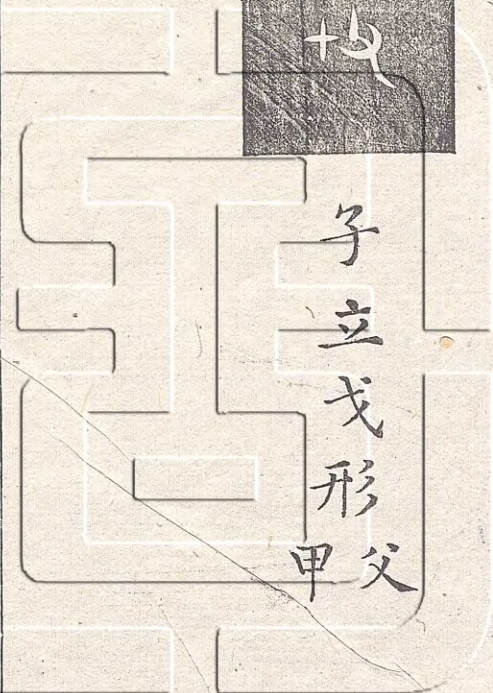 子立戈形
父甲